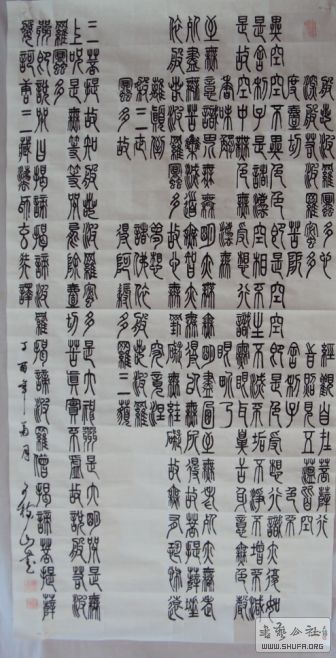 般若波羅蜜多
心經
觀自在菩薩行
深般若波羅蜜多
時照見五蘊皆空
度一切苦厄
舍利子色不
異空空不異色色即是空空即是色受想行識亦復如
是舍利子是諸法空相不生不滅不垢不淨不增不減
是故空中無色無受想行識無眼耳鼻舌身意無色聲
香味觸法
無眼界乃
至無意識界無無明亦無無明盡乃至無老死亦無老死盡
無苦集滅道無智亦無得以無所得故菩提薩埵
依般若波羅蜜多故心無罣礙無罣礙故無有恐怖遠
離顛倒
夢想
究竟涅槃
三世
諸佛依般若波羅
蜜多故
得阿耨多羅三藐
三菩提故知般若波羅蜜多是大神咒是大明咒是無
上咒是無等等咒能除一切苦真實不虛故說般若波
羅蜜多
咒即說咒曰揭諦揭諦波羅揭諦波羅僧揭諦菩提薩
婆訶 唐三藏法師玄奘譯
丁酉年
書法公社
WWW.SHUFA.ORG